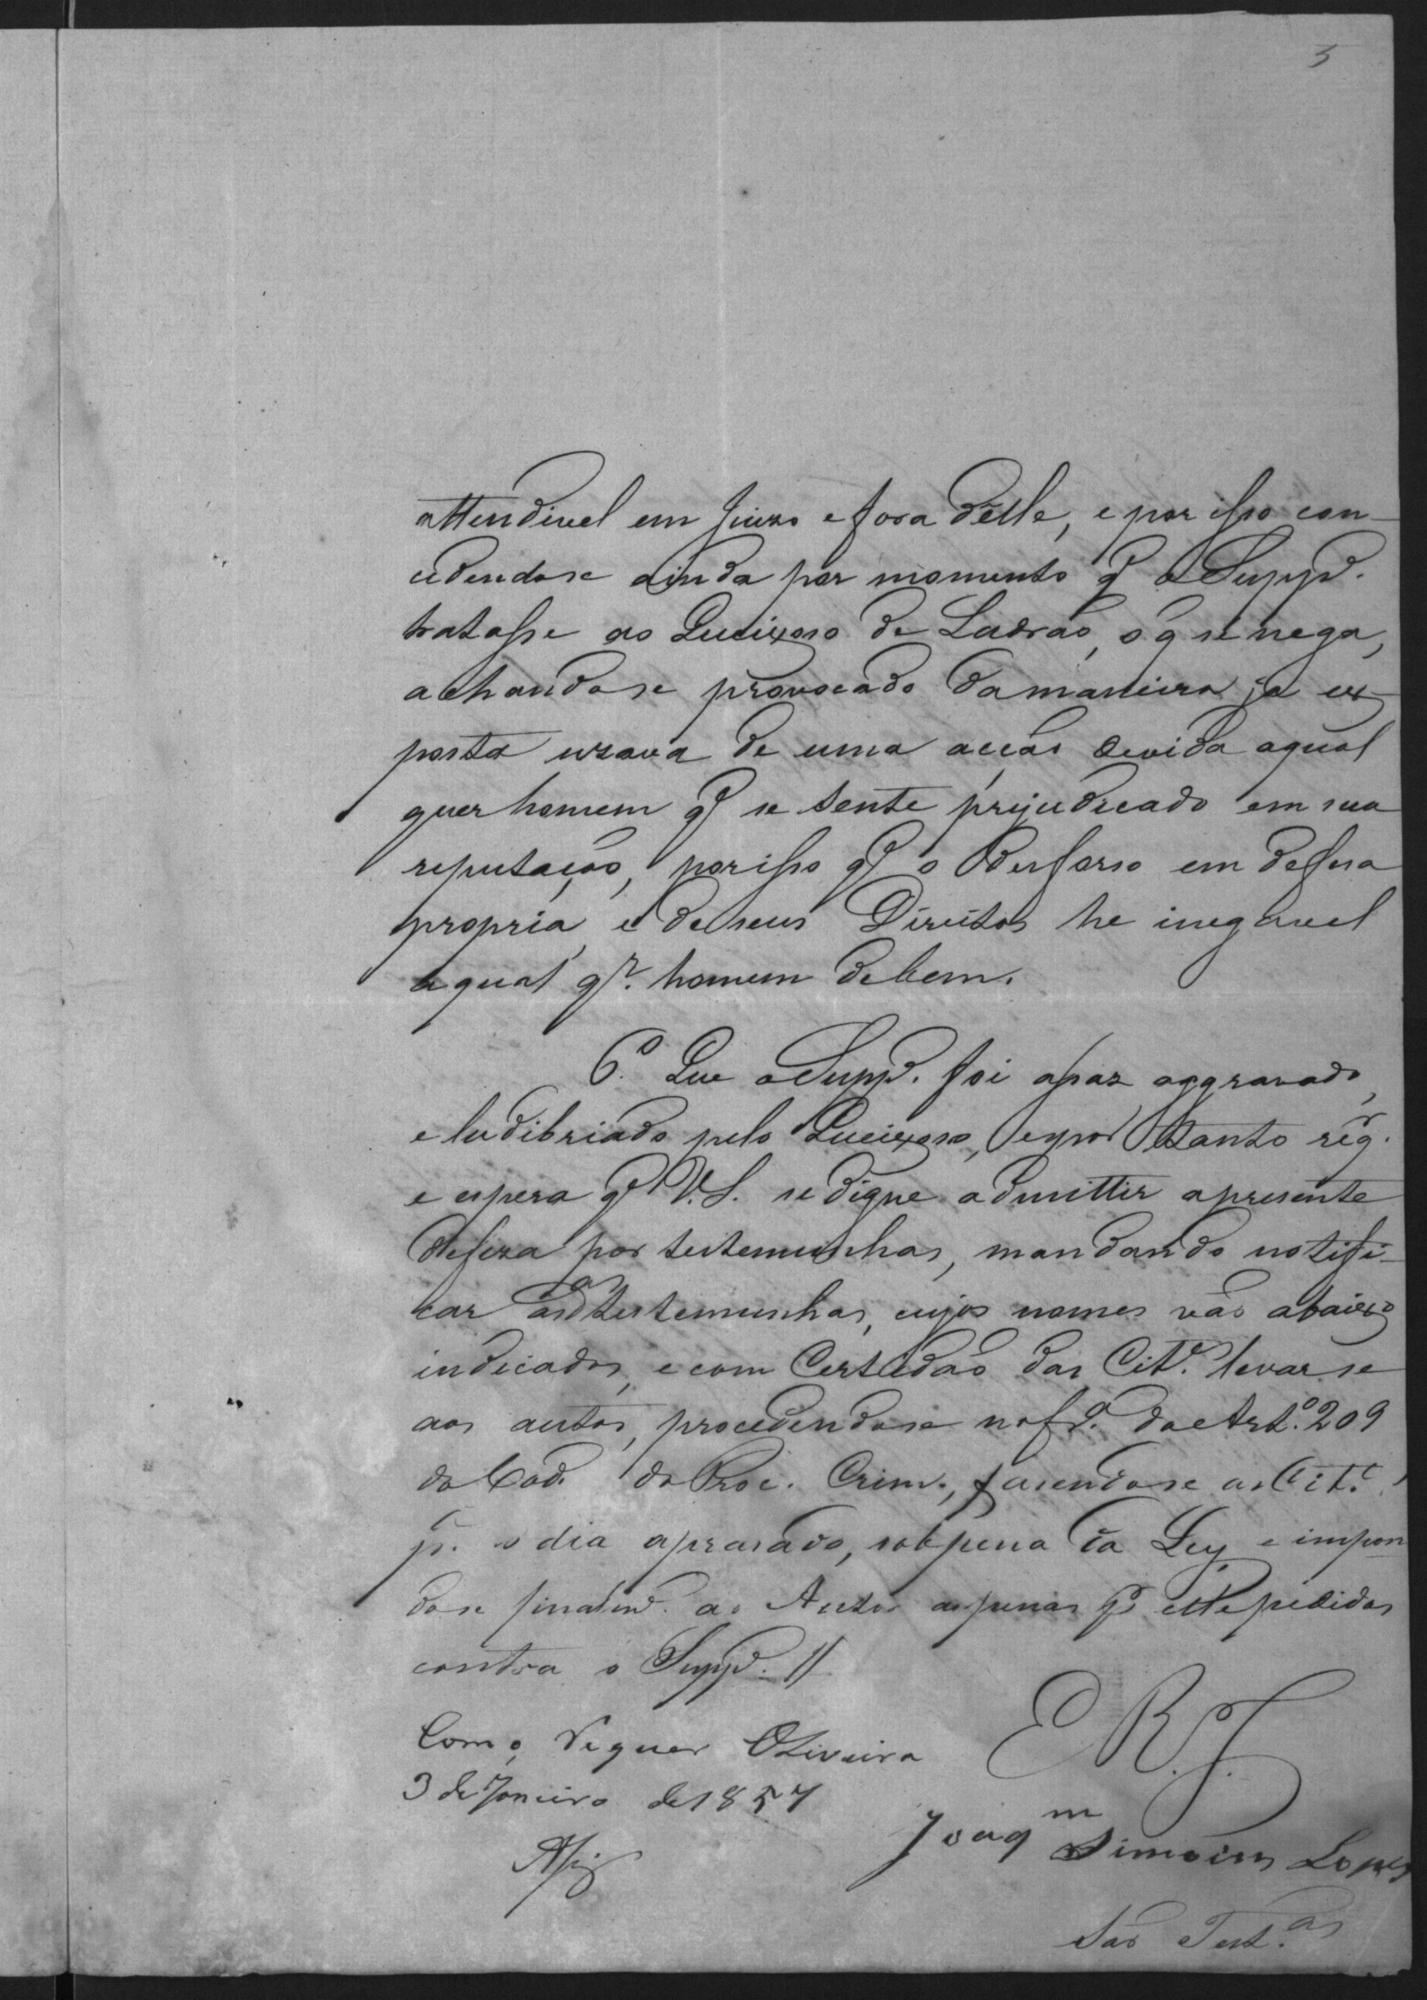 5
attendivel em Juizo e fora d'elle, e por isso con-
cedendose ainda por momento q̃ o Supp.do
tratasse ao Queixoso de Ladrão, o q̃ se nega,
achandose provocado da maneira já ex-
posta uzava de uma acção devida aqual
quer homem q̃ se sente prejudicado em sua
reputação, por isso q̃ o desforso em defesa
propria, e de seus Direitos he inegavel
a qual q.r homem de bem.
6.º Que o Supp.do foi assaz aggravado,
e ludibriado pelo Queixoso, e por tanto req.r
e espera q̃ V.S. se digne admittir a presente
defeza por testemunhas, mandando notifi-
car as testemunhas, cujos nomes vão abaixo
indicados, e com Certidão das Cit.es levar se
aos autos, procedendose na f.a do Art.º 209
do Cod. do Proc. Crim., fasendose as Cit.es
p.a o dia aprasado, sob pena da Ley e impon
dose finalm.e ao Autor as penas p.r elle pedidas
contra o Supp.do //
E. R. J.
Como requer Oliveira
3 de Janeiro de 1857
Joaq.m Simoens Lopes
São Test.as